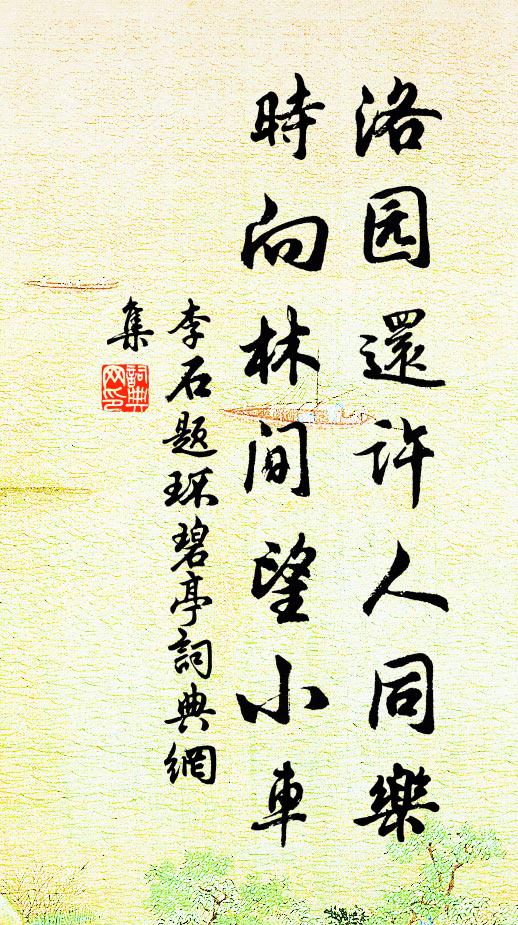 洛园還許人同樂
時向林间望小車
李石题环碧亭詞典網
集
詞典
网印